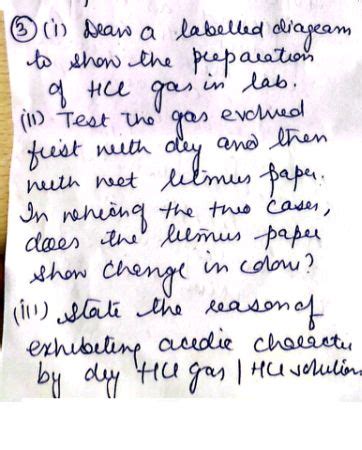 ③ (i) Draw a labelled diagram
to show the preparation
of HCl gas in lab.
(ii) Test the gas evolved
first with dry and then
with wet litmus paper.
In which of the two cases,
does the litmus paper
show change in colour?
(iii) State the reason of
exhibiting acidic character
by dry HCl gas | HCl solution